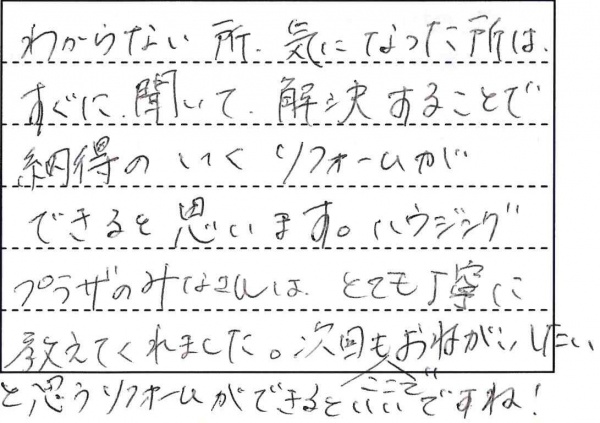 わからない所、気になった所は、
すぐに、聞いて、解決することで
納得のいくリフォームが
できると思います。ハウジング
プラザのみなさんは、とても丁寧に
教えてくれました。次回もおねがいしたい
と思うリフォームができるといいですね！
ここで